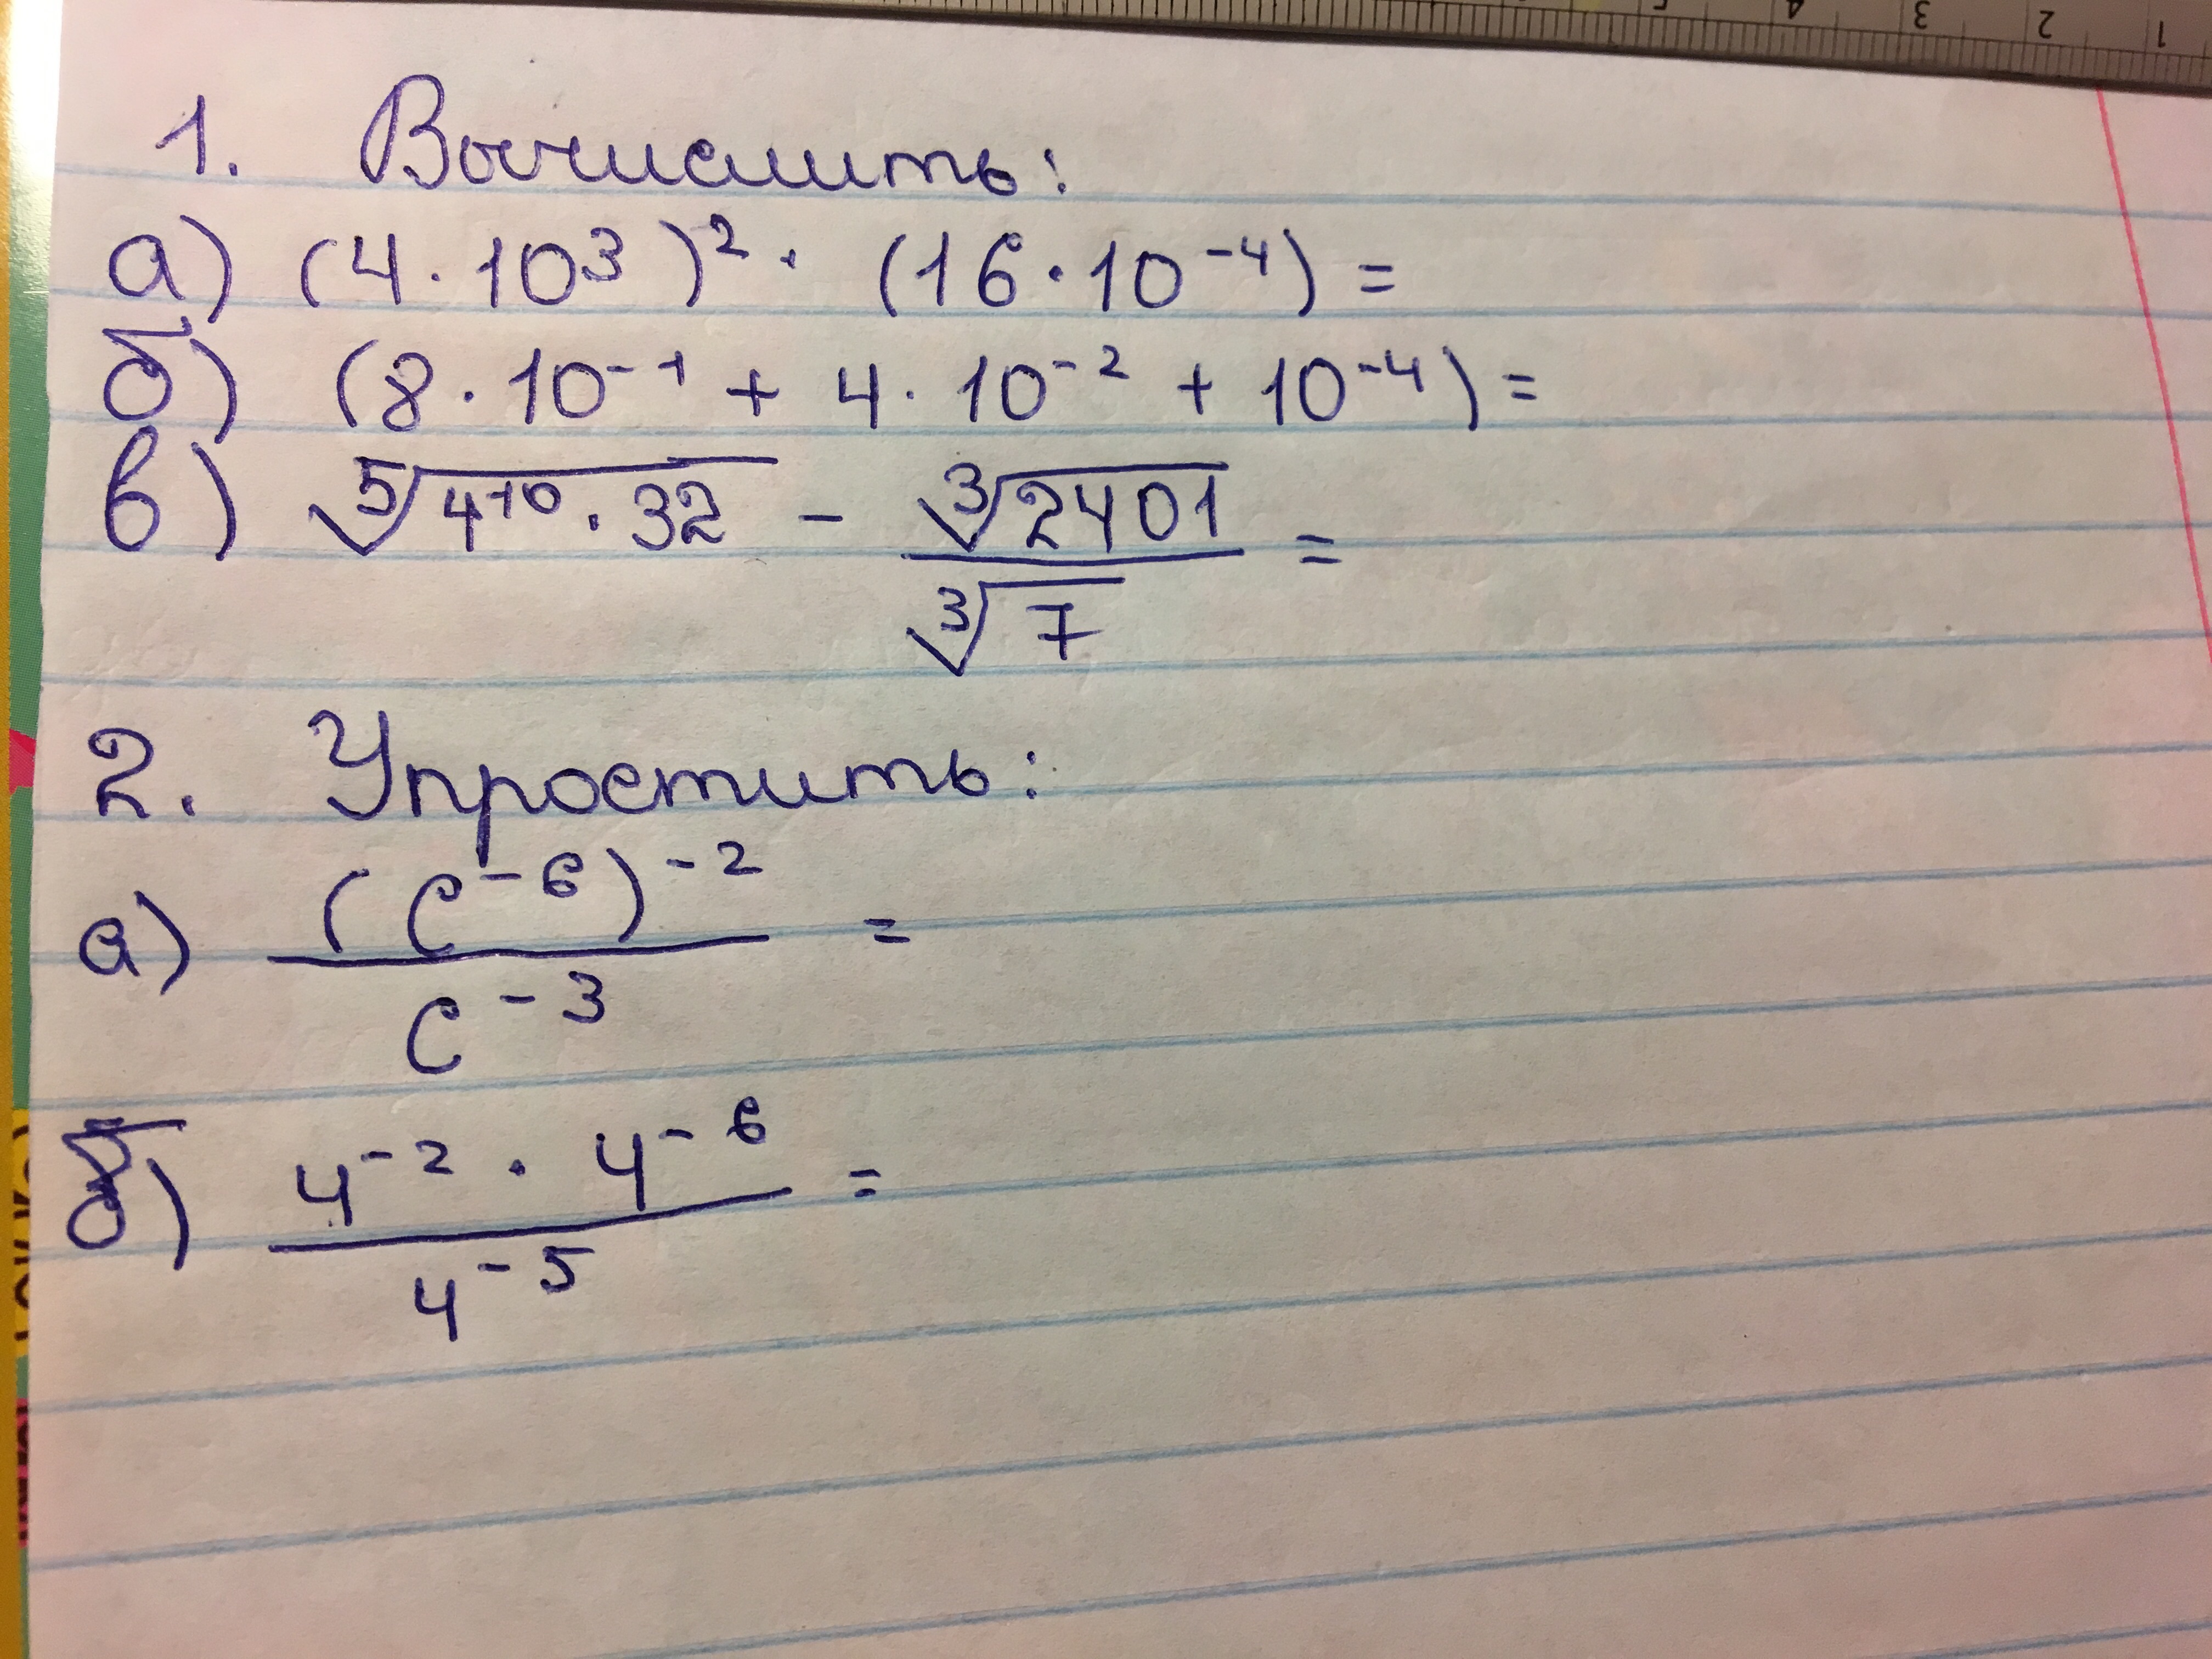 5 4 3 2 1
1. Вычислить:
а) (4·10³)²· (16·10⁻⁴) =
б) (8·10⁻¹ + 4·10⁻² + 10⁻⁴) =
в) ⁵√(4¹⁰·32) - ³√2401 / ³√7 =
2. Упростить:
а) (c⁻⁶)⁻² / c⁻³ =
б) 4⁻² · 4⁻⁶ / 4⁻⁵ =